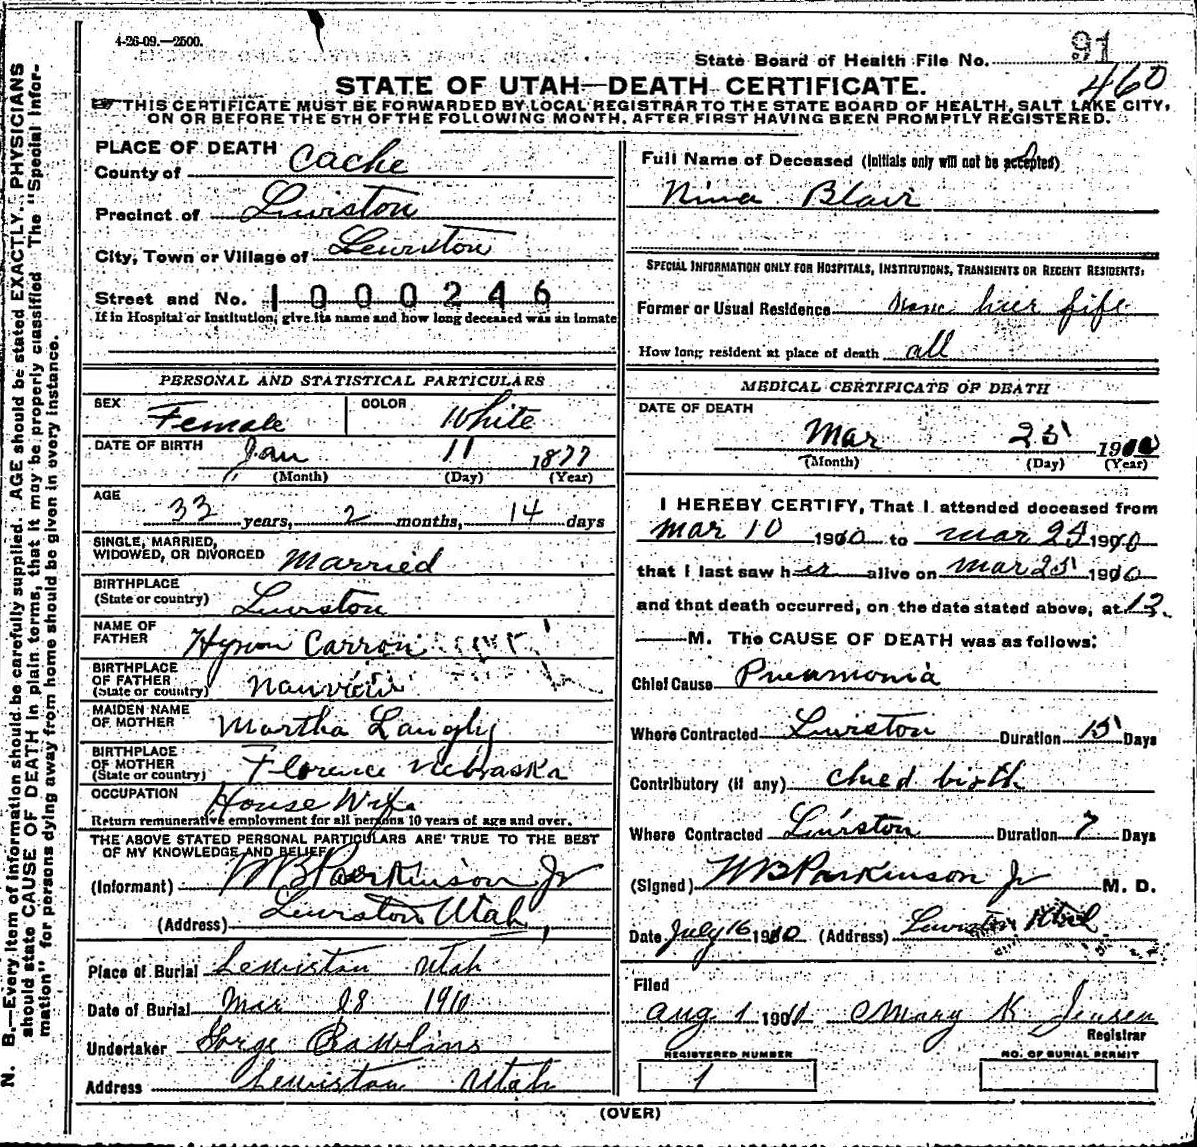 4-26-09.—2500.
State Board of Health File No. 91
460
STATE OF UTAH—DEATH CERTIFICATE.
THIS CERTIFICATE MUST BE FORWARDED BY LOCAL REGISTRAR TO THE STATE BOARD OF HEALTH, SALT LAKE CITY,
ON OR BEFORE THE 5TH OF THE FOLLOWING MONTH, AFTER FIRST HAVING BEEN PROMPTLY REGISTERED.
N. B.—Every item of information should be carefully supplied. AGE should be stated EXACTLY. PHYSICIANS
should state CAUSE OF DEATH in plain terms, that it may be properly classified. The "Special Infor-
mation" for persons dying away from home should be given in every instance.
PLACE OF DEATH
County of Cache
Precinct of Lewiston
City, Town or Village of Lewiston
Street and No. 1000246
If in Hospital or Institution, give its name and how long deceased was an inmate
PERSONAL AND STATISTICAL PARTICULARS
SEX Female COLOR White
DATE OF BIRTH Jan 11 1877
(Month) (Day) (Year)
AGE
33 years, 2 months, 14 days
SINGLE, MARRIED,
WIDOWED, OR DIVORCED Married
BIRTHPLACE
(State or country) Lewiston
NAME OF
FATHER Hyrum Carron
BIRTHPLACE
OF FATHER
(State or country)
MAIDEN NAME
OF MOTHER Martha Langly
BIRTHPLACE
OF MOTHER
(State or country) Florence Nebraska
OCCUPATION House Wife
Return remunerative employment for all persons 10 years of age and over.
THE ABOVE STATED PERSONAL PARTICULARS ARE TRUE TO THE BEST
OF MY KNOWLEDGE AND BELIEF
(Informant) WB Parkinson Jr
(Address) Lewiston Utah
Place of Burial Lewiston Utah
Date of Burial Mar 28 1910
Undertaker Gorge Rawlins
Address Lewiston Utah
Full Name of Deceased (Initials only will not be accepted)
Nina Blair
SPECIAL INFORMATION ONLY FOR HOSPITALS, INSTITUTIONS, TRANSIENTS OR RECENT RESIDENTS:
Former or Usual Residence
How long resident at place of death all
MEDICAL CERTIFICATE OF DEATH
DATE OF DEATH
Mar 25 1910
(Month) (Day) (Year)
I HEREBY CERTIFY, That I attended deceased from
Mar 10 1910 to Mar 25 1910
that I last saw her alive on Mar 25 1910
and that death occurred, on the date stated above, at 12
M. The CAUSE OF DEATH was as follows:
Chief Cause Pneamonia
Where Contracted Lewiston Duration 15 Days
Contributory (if any) child birth
Where Contracted Lewiston Duration 7 Days
(Signed) WB Parkinson Jr M. D.
Date July 16 1910 (Address) Lewiston Utah
Filed
Aug 1 1910 Mary K Jensen
Registrar
REGISTERED NUMBER
1
NO. OF BURIAL PERMIT
(OVER)